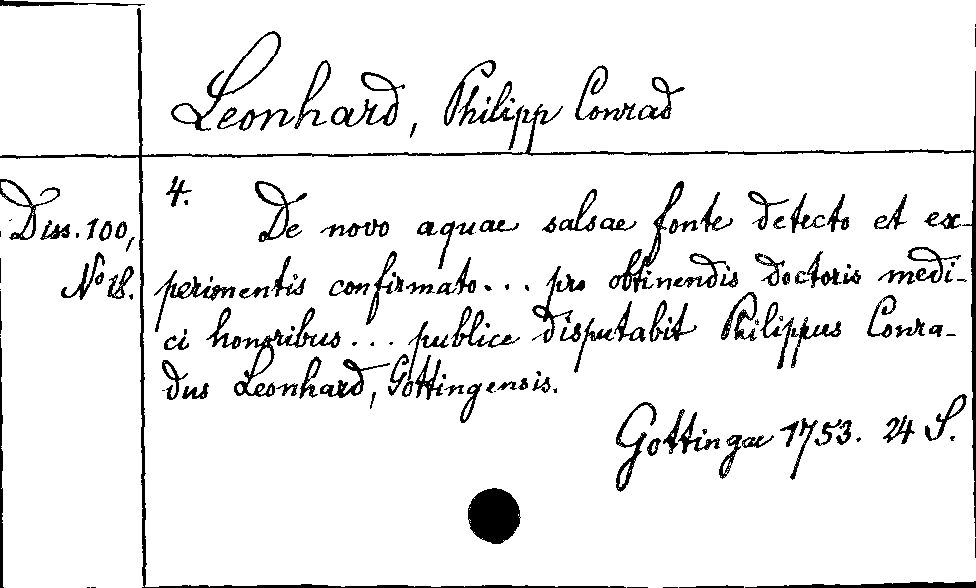 Leonhard, Philipp Conrad
Diss. 100,
No 18.
4. De novo aquae salsae fonte detecto et ex-
perimentis confirmato... pro obtinendis doctoris medi-
ci honoribus... publice disputabit Philippus Conra-
dus Leonhard, Gottingensis.
Gottingae 1753. 24 S.